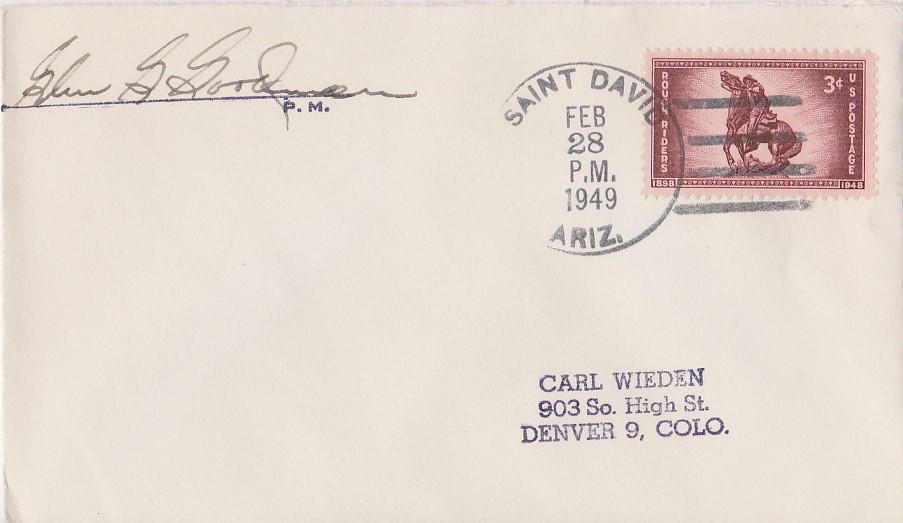 Glen G Goodman
P. M.
SAINT DAVID
FEB
28
P.M.
1949
ARIZ.
ROUGH RIDERS
3¢
U S POSTAGE
1898
1948
CARL WIEDEN
903 So. High St.
DENVER 9, COLO.